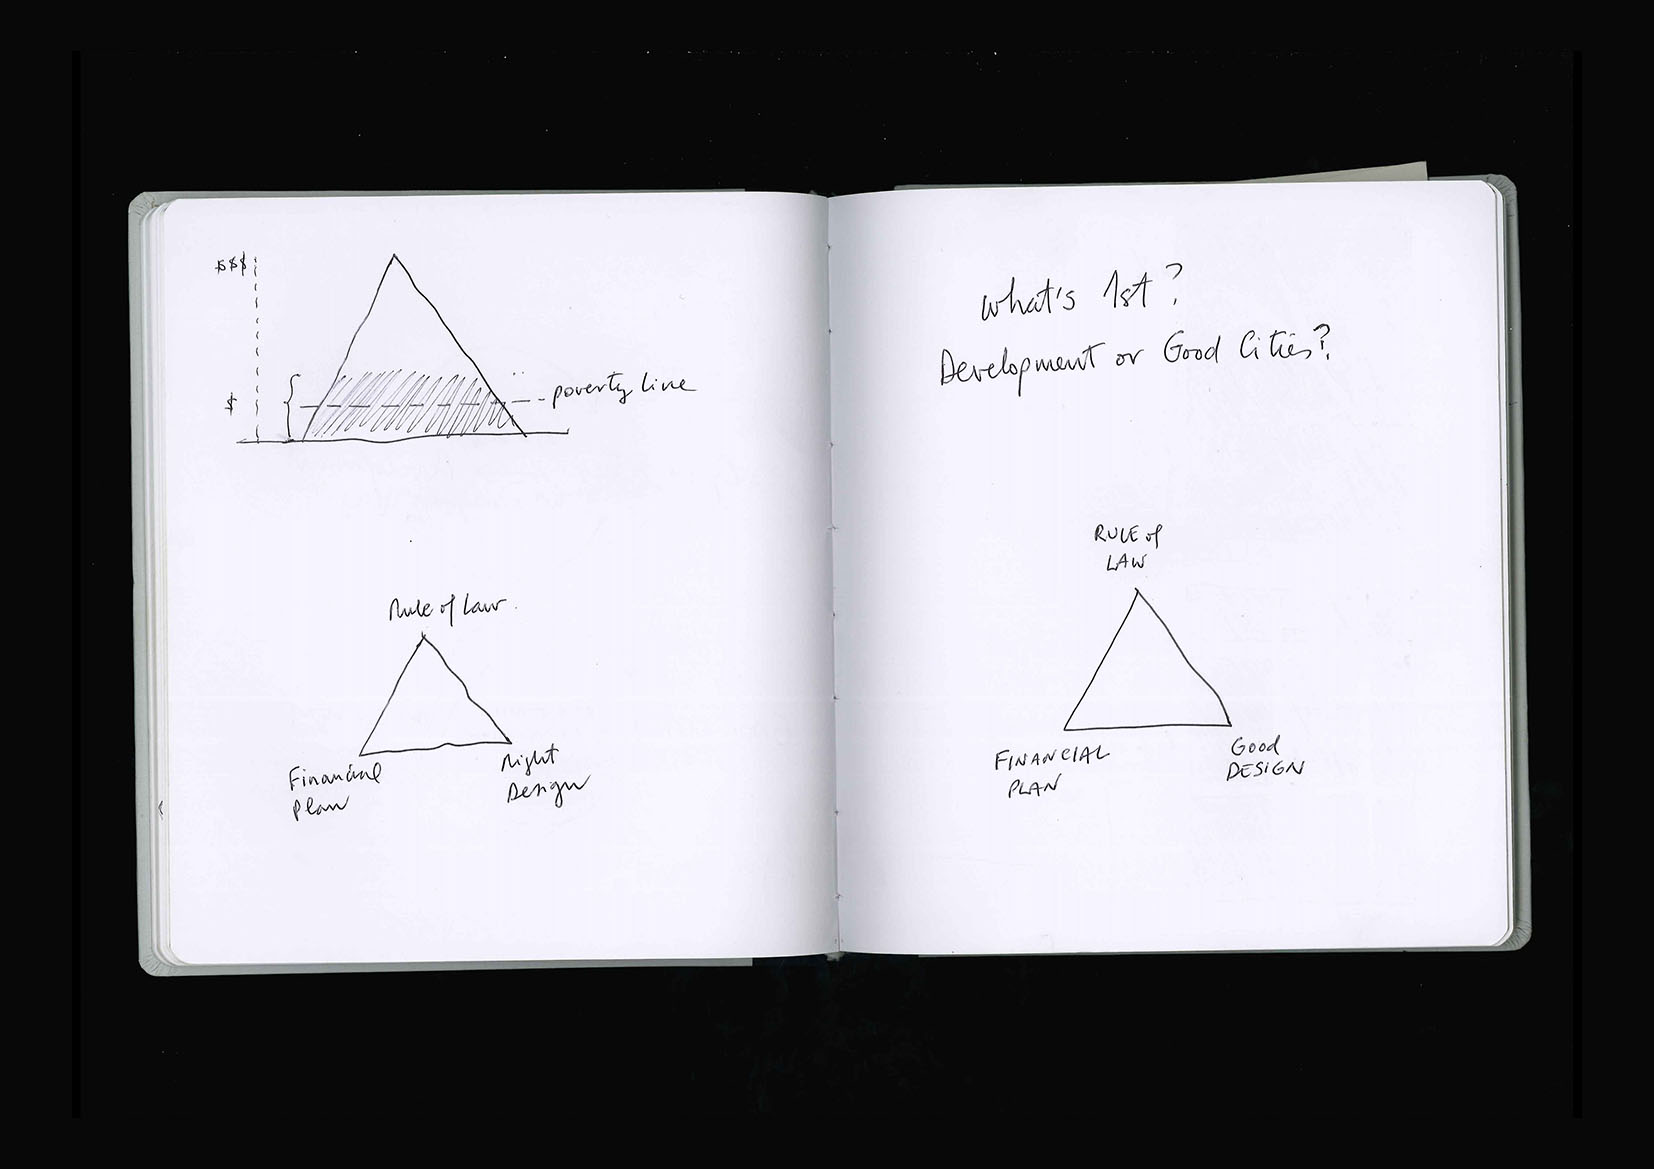 $$$
$
poverty line
Rule of Law
Financial
Plan
Right
Design
What's 1st?
Development or Good Cities?
RULE of
LAW
FINANCIAL
PLAN
Good
DESIGN